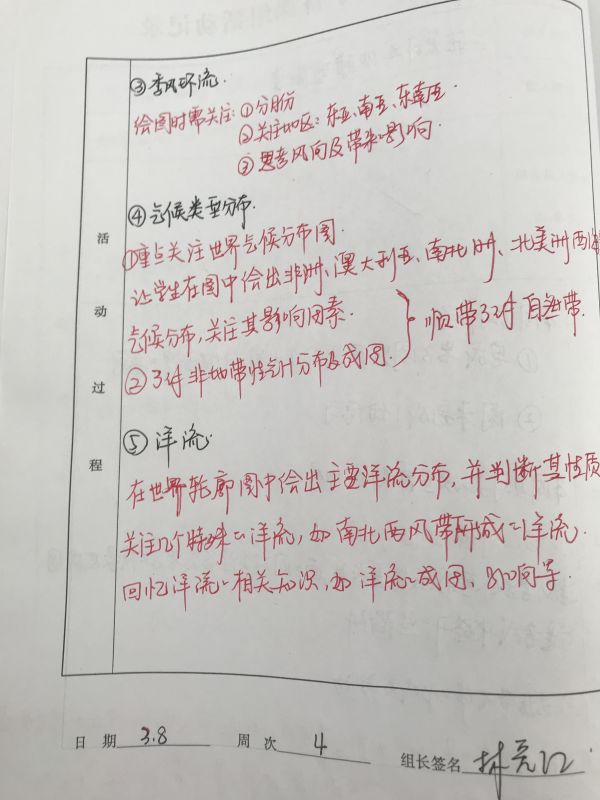 ③季风环流.
绘图时需关注: ①分月份
②关注地区: 东亚、南亚、东南亚
③思考风向及带来影响.
④气候类型分布.
①重点关注世界气候分布图.
让学生在图中绘出非洲、澳大利亚、南北洲、北美洲西海
气候分布, 关注其影响因素.
②对非地带性气候分布及成因. 顺带对自然带.
⑤洋流.
在世界轮廓图中绘出主要洋流分布, 并判断其性质
关注几个特殊的洋流, 如南北西风带形成的洋流.
回忆洋流的相关知识, 如洋流的成因、影响等.
活动过程
日 期 3.8 周 次 4 组长签名